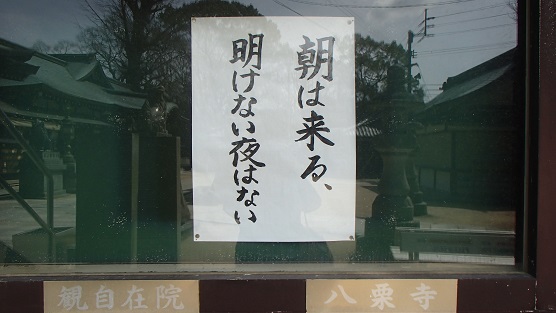 朝は来る、
明けない夜はない
観自在院
八栗寺